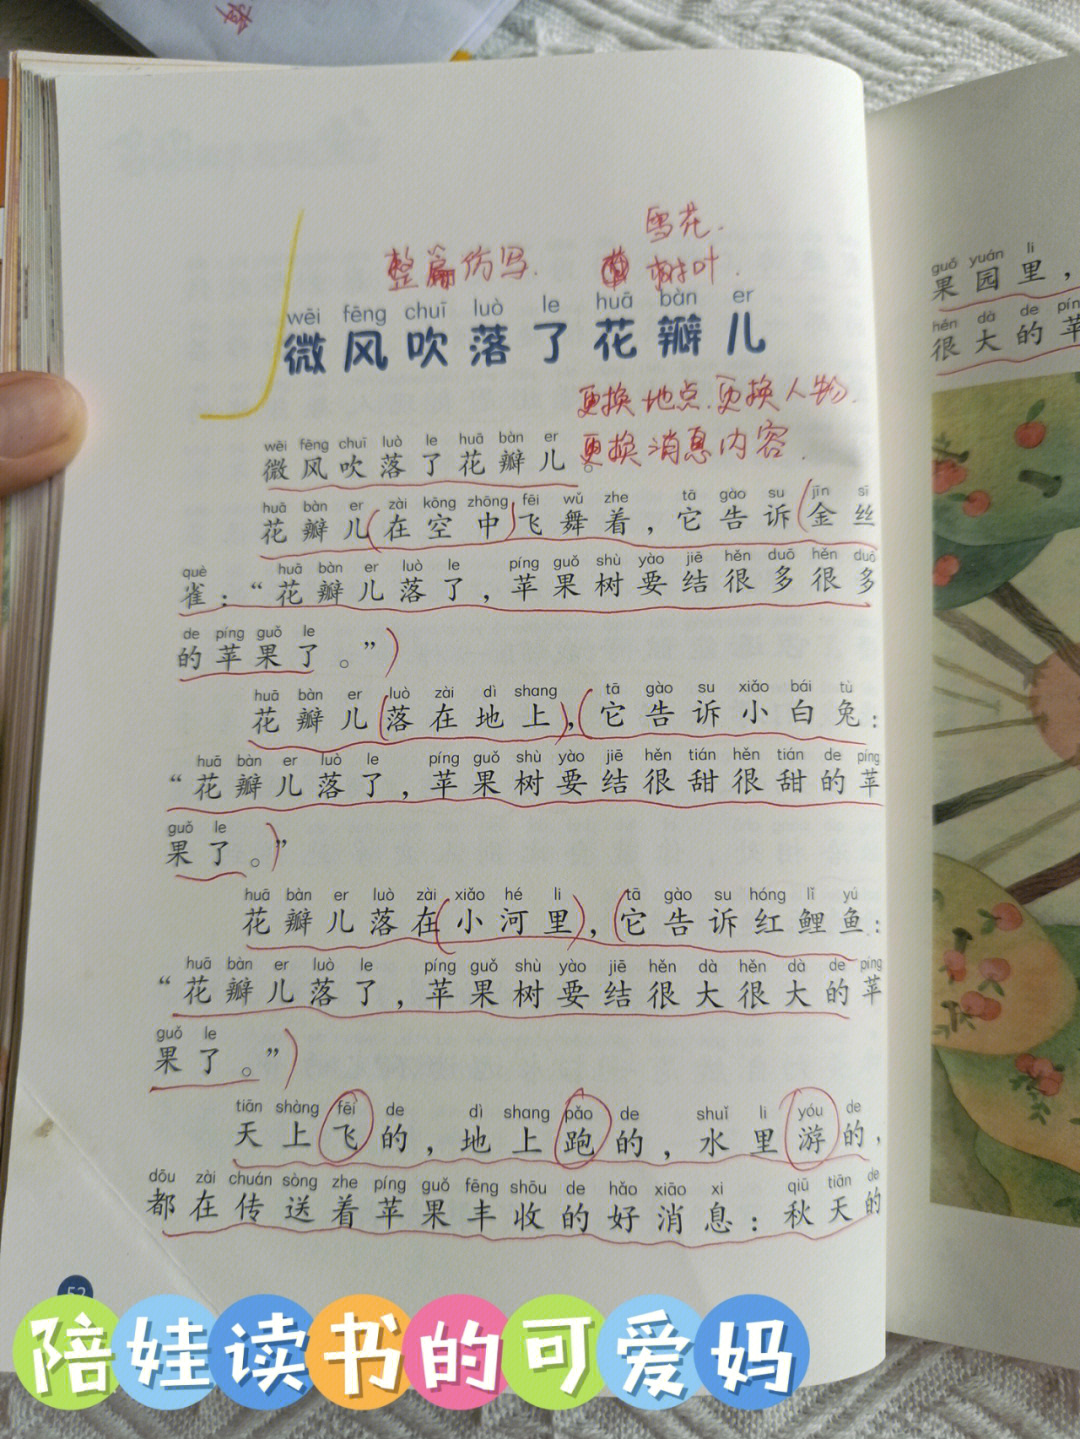 雪花.
整篇仿写. 树叶.
wēi fēng chuī luò le huā bàn er
微风吹落了花瓣儿
更换地点.更换人物.
wēi fēng chuī luò le huā bàn er
微风吹落了花瓣儿。
更换消息内容.
huā bàn er zài kōng zhōng fēi wǔ zhe tā gào su jīn sī
花瓣儿在空中飞舞着，它告诉金丝
què huā bàn er luò le píng guǒ shù yào jiē hěn duō hěn duō
雀：“花瓣儿落了，苹果树要结很多很多
de píng guǒ le
的苹果了。”
huā bàn er luò zài dì shang tā gào su xiǎo bái tù
花瓣儿落在地上，它告诉小白兔：
huā bàn er luò le píng guǒ shù yào jiē hěn tián hěn tián de píng
“花瓣儿落了，苹果树要结很甜很甜的苹
guǒ le
果了。”
huā bàn er luò zài xiǎo hé li tā gào su hóng lǐ yú
花瓣儿落在小河里，它告诉红鲤鱼：
huā bàn er luò le píng guǒ shù yào jiē hěn dà hěn dà de píng
“花瓣儿落了，苹果树要结很大很大的苹
guǒ le
果了。”
tiān shàng fēi de dì shang pǎo de shuǐ li yóu de
天上飞的，地上跑的，水里游的，
dōu zài chuán sòng zhe píng guǒ fēng shōu de hǎo xiāo xi qiū tiān de
都在传送着苹果丰收的好消息：秋天的
52
guǒ yuán li
果园里，
hěn dà de píng
很大的苹
陪娃读书的可爱妈